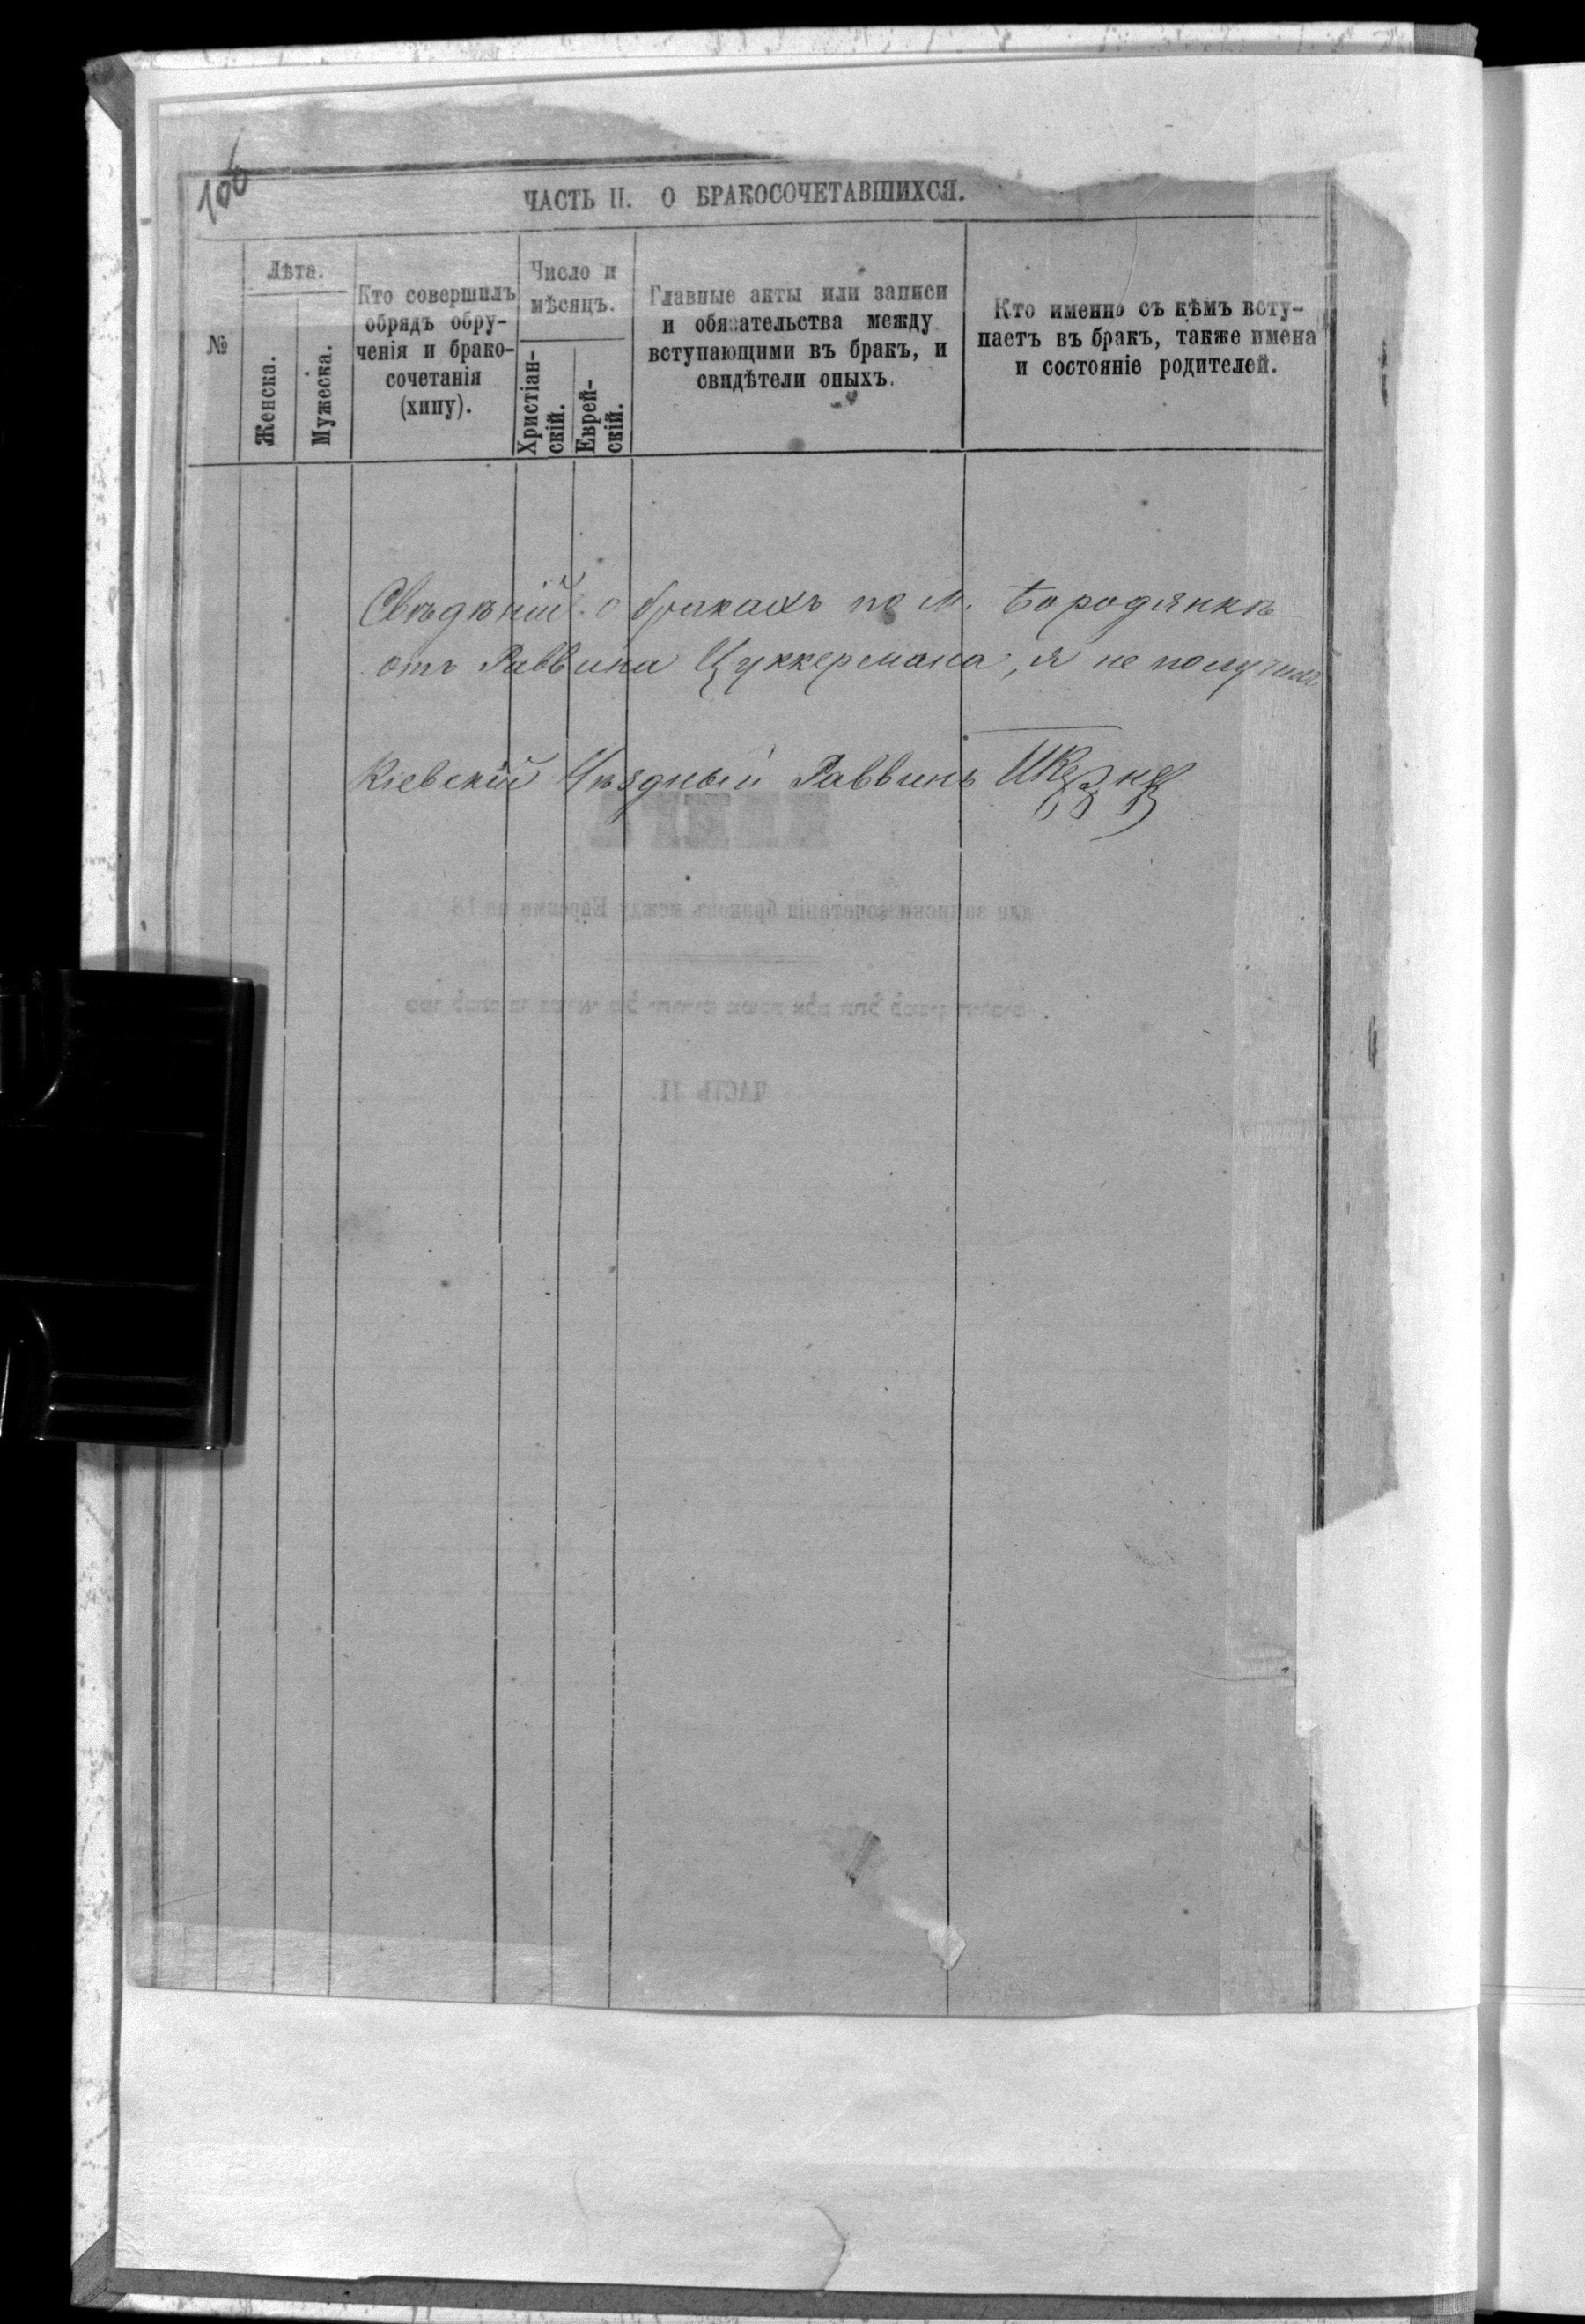 106
ЧАСТЬ II. О БРАКОСОЧЕТАВШИХСЯ.
№
Лѣта.
Женска.
Мужеска.
Кто совершилъ
обрядъ обру-
ченія и брако-
сочетанія
(хипу).
Число и
мѣсяцъ.
Христіан-
скій.
Еврей-
скій.
Главные акты или записи
и обязательства между
вступающими въ бракъ, и
свидѣтели оныхъ.
Кто именно съ кѣмъ всту-
паетъ въ бракъ, также имена
и состояніе родителей.
Свѣдѣній о бракахъ по м. Бородянкѣ
отъ Раввина Цуккермана, я не получилъ
Кіевскій Уѣздный Раввинъ